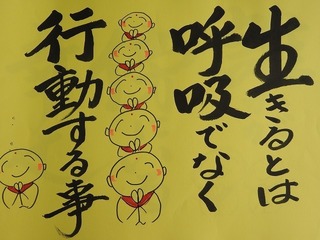 生きるとは
呼吸でなく
行動する事